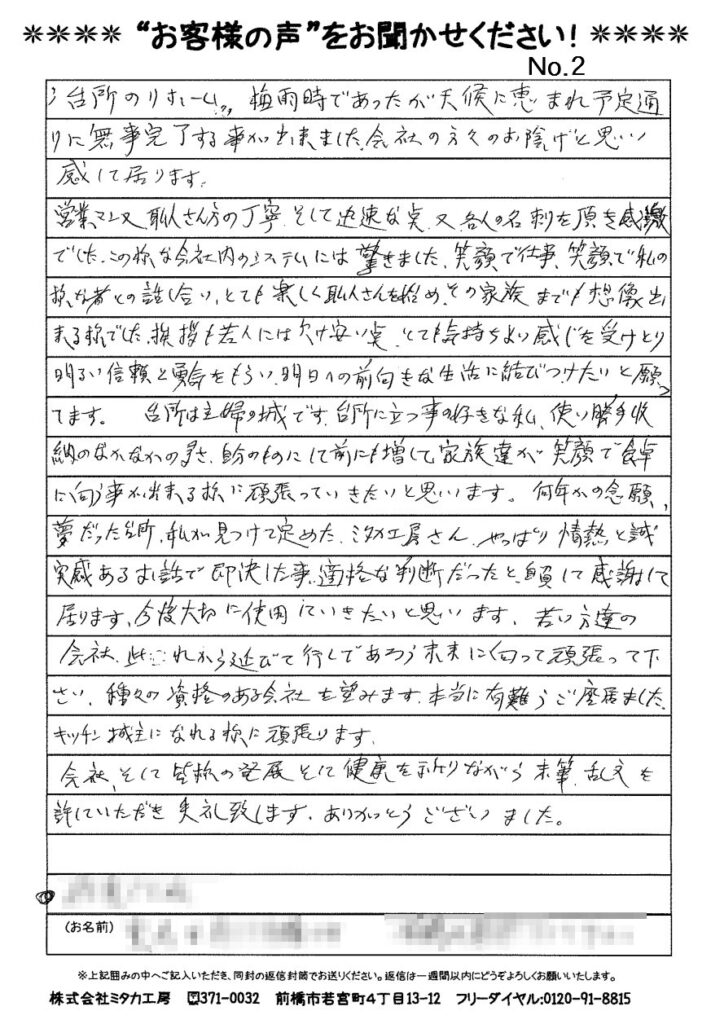 ****“お客様の声”をお聞かせください!****
No.2
台所のリホーム、梅雨時であったが天候に恵まれ予定通
りに無事完了する事が出来ました、会社の方々のお陰げと思い
感して居ります。
営業マン又職人さん方の丁寧、そして迅速な点、又各人の名刺を頂き感激
でした、この様な会社内のシステムには驚きました、笑顔で仕事、笑顔で私の
様な者との話し合い、とても楽しく職人さんを始め、その家族までも想像出
来る様でした、挨拶も若人には欠け安い点、とても気持ちよい感じを受けとり
明るい信頼と勇気をもらい、明日への前向きな生活に結びつけたいと願っ
てます。 台所は主婦の城です、台所に立つ事の好きな私、使い勝手収
納のなかなかの良さ、自分のものにして前にも増して家族達が笑顔で食卓
に向う事が出来る様に頑張っていきたいと思います。 何年かの念願、
夢だった台所、私が見つけて定めた、ミタカ工房さん、やっぱり情熱と誠
実感あるお話で即決した事、適格な判断だったと自負して感謝して
居ります、今後大切に使用していきたいと思います、若い方達の
会社、これから延びて行くであろう未来に向って頑張って下
さい、種々の資格のある会社を望みます、本当に有難うご座居ました、
キッチン城主になれる様に頑張ります、
会社、そして皆様の発展そして健康を祈りながら末筆、乱文を
許していただき失礼致します、ありがとうございました。
(お名前)
※上記囲みの中へご記入いただき、同封の返信封筒でお送りください。返信は一週間以内にどうぞよろしくお願いいたします。
株式会社ミタカ工房 〒371-0032 前橋市若宮町4丁目13-12 フリーダイヤル:0120-91-8815